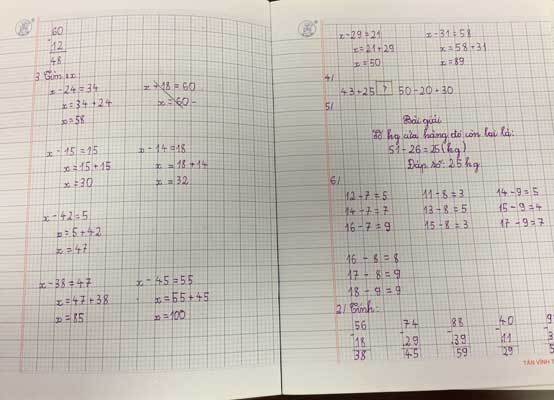 60
- 12
48
3. Tìm x
x - 24 = 34
x = 34 + 24
x = 58
x + 18 = 60
x = 60 -
x - 15 = 15
x = 15 + 15
x = 30
x - 14 = 18
x = 18 + 14
x = 32
x - 42 = 5
x = 5 + 42
x = 47
x - 38 = 47
x = 47 + 38
x = 85
x - 45 = 55
x = 55 + 45
x = 100
x - 29 = 21
x = 21 + 29
x = 50
x - 31 = 58
x = 58 + 31
x = 89
4/
43 + 25 > 50 - 20 + 30
5/
Bài giải
Số kg cửa hàng đó còn lại là:
51 - 26 = 25 (kg)
Đáp số: 25 kg
6/
12 - 7 = 5 11 - 8 = 3 14 - 9 = 5
14 - 7 = 7 13 - 8 = 5 15 - 9 = 4
16 - 7 = 9 15 - 8 = 3 17 - 9 = 7
16 - 8 = 8
17 - 8 = 9
18 - 9 = 9
2/ Tính:
56 74 88 40 9
- 18 - 29 - 39 - 11 - 3
38 45 59 29 5
TÂN VĨNH T